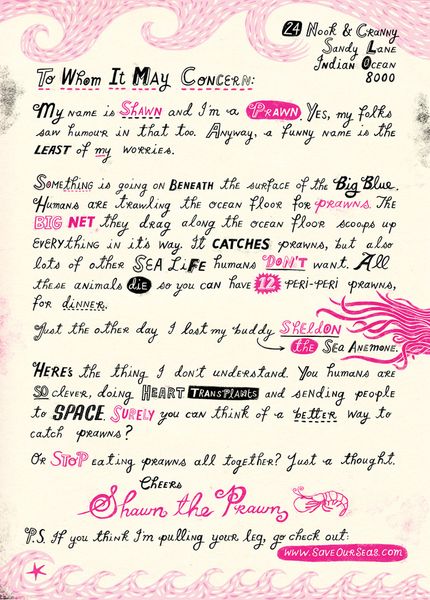 24 Nook & Cranny
Sandy Lane
Indian Ocean
8000
To Whom It May Concern:
My name is Shawn and I'm a Prawn. Yes, my folks
saw humour in that too. Anyway, a funny name is the
LEAST of my worries.
Something is going on BENEATH the surface of the Big Blue.
Humans are trawling the ocean floor for prawns. The
BIG NET they drag along the ocean floor scoops up
everything in it's way. It CATCHES prawns, but also
lots of other SEA LIFE humans DON'T want. All
these animals die so you can have 12 PERI-PERI prawns,
for dinner.
Just the other day I lost my buddy Sheldon
the Sea Anemone.
Here's the thing I don't understand. You humans are
SO clever, doing HEART TRANSPLANTS and sending people
to SPACE. Surely you can think of a better way to
catch prawns?
Or STOP eating prawns all together? Just a thought.
Cheers
Shawn the Prawn
P.S. If you think I'm pulling your leg, go check out:
www.SaveOurSeas.com